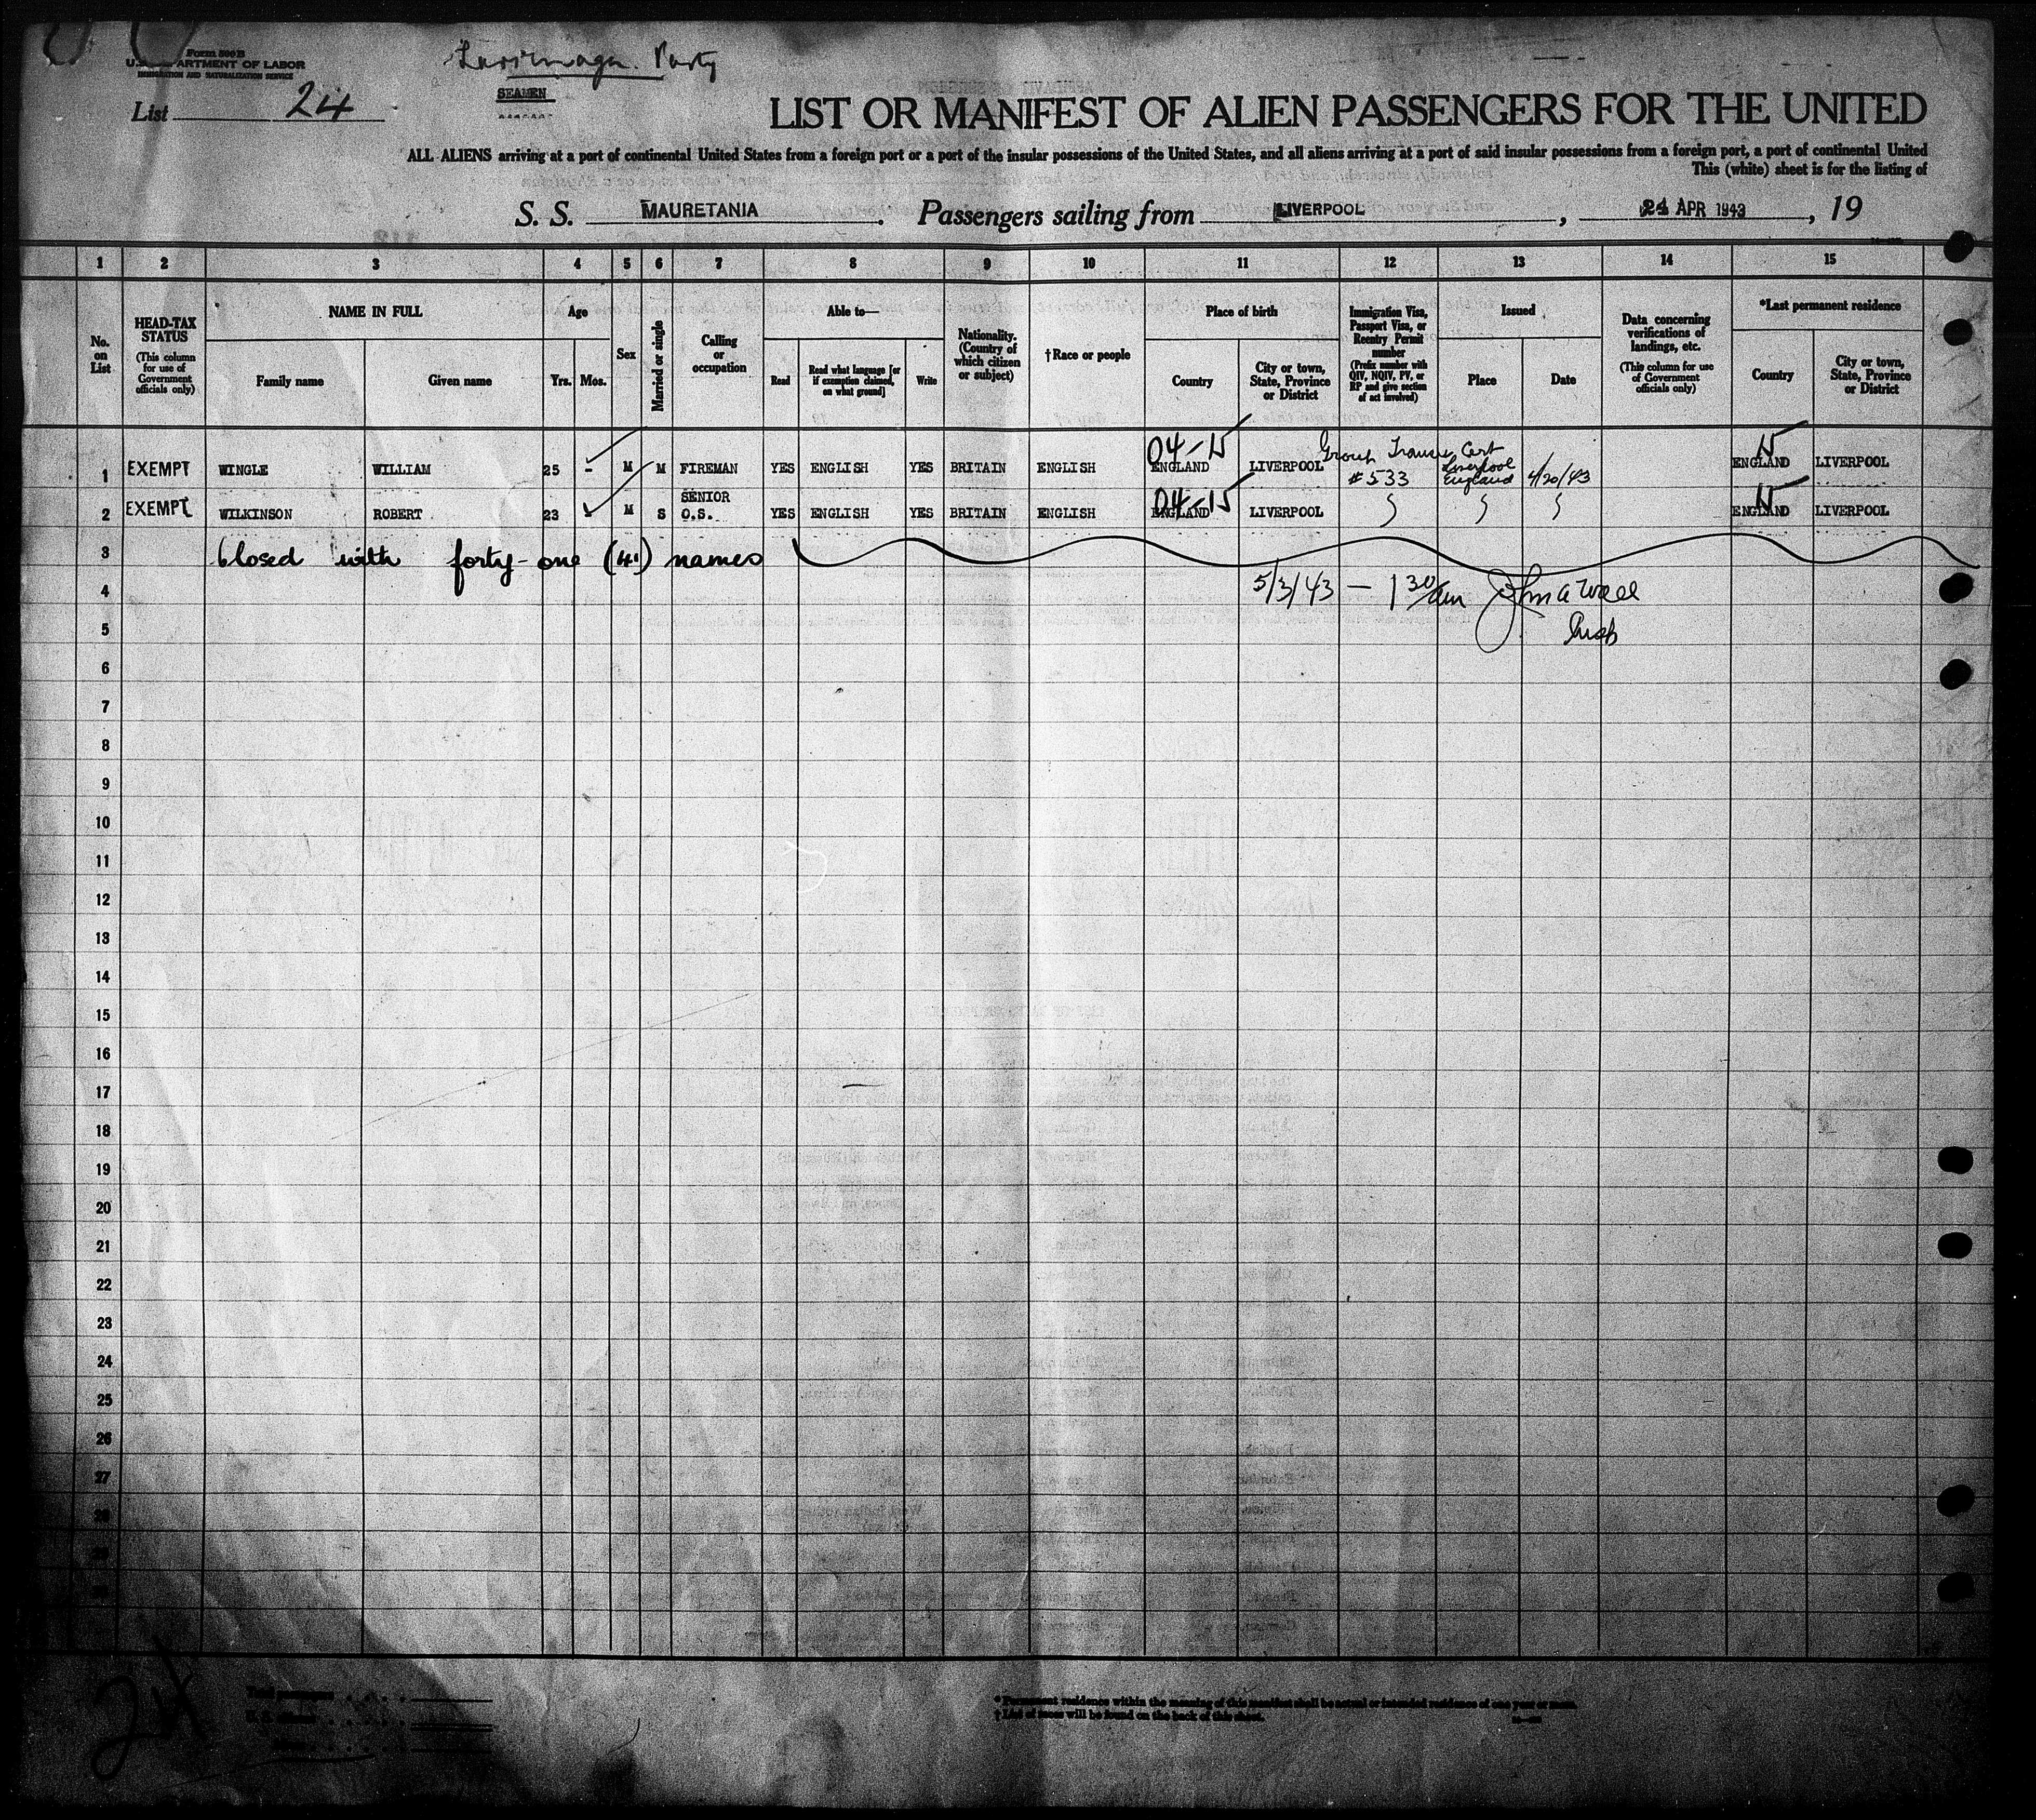 Form 500B
U. S. DEPARTMENT OF LABOR
IMMIGRATION AND NATURALIZATION SERVICE
List 24
Party
SEAMEN
LIST OR MANIFEST OF ALIEN PASSENGERS FOR THE UNITED
ALL ALIENS arriving at a port of continental United States from a foreign port or a port of the insular possessions of the United States, and all aliens arriving at a port of said insular possessions from a foreign port, a port of continental United
This (white) sheet is for the listing of
S. S. MAURETANIA. Passengers sailing from LIVERPOOL, 24 APR 1943, 19
1 2 3 4 5 6 7 8 9 10 11 12 13 14 15
No. on List
HEAD-TAX STATUS (This column for use of Government officials only)
NAME IN FULL
Family name
Given name
Age
Yrs.
Mos.
Sex
Married or single
Calling or occupation
Able to—
Read
Read what language [or if exemption claimed, on what ground]
Write
Nationality. (Country of which citizen or subject)
†Race or people
Place of birth
Country
City or town, State, Province or District
Immigration Visa, Passport Visa, or Reentry Permit number (Prefix number with QIV, NQIV, PV, or RP and give section of act involved)
Issued
Place
Date
Data concerning verifications of landings, etc. (This column for use of Government officials only)
*Last permanent residence
Country
City or town, State, Province or District
04-15 Group Transit Cert
1 EXEMPT WINGLE WILLIAM 25 - M M FIREMAN YES ENGLISH YES BRITAIN ENGLISH ENGLAND LIVERPOOL #533 Liverpool England 4/20/43 ENGLAND LIVERPOOL
04-15
2 EXEMPT WILKINSON ROBERT 23 - M S SENIOR O.S. YES ENGLISH YES BRITAIN ENGLISH ENGLAND LIVERPOOL ENGLAND LIVERPOOL
3 Closed with forty-one (41) names
4 5/3/43 — 1 30/am John a Wall
5
6
7
8
9
10
11
12
13
14
15
16
17
18
19
20
21
22
23
24
25
26
27
28
29
30
24
Total passengers
U. S. citizens
Aliens
* Permanent residence within the meaning of this manifest shall be actual or intended residence of one year or more.
† List of races will be found on the back of this sheet.